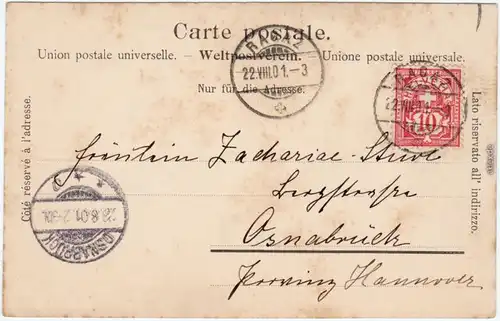 Carte postale.
Union postale universelle. — Weltpostverein. — Unione postale universale.
Nur für die Adresse.
Côté réservé à l'adresse.
Lato riservato all' indirizzo.
RAGAZ
22.VIII.01.-3
10
Fräulein Zacharias-Stüve
Bergstrasse
Osnabrück
Provinz Hannover
OSNABRÜCK